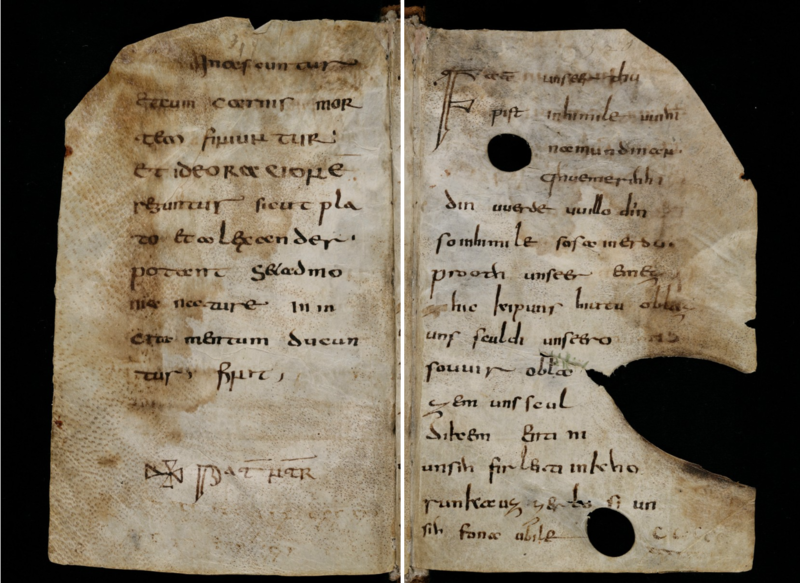 et cum carnis mor
tem finiuntur
et ideo ratione
reguntur sicut pla
to et alexander
nature in in
mentum ducun
tur finit
Fat unseer thu
pist in himile uuihi
namun dinan
qhueme rihhi
din uuerde uuillo diin
so in himile sosa in erdu
prooth unseer emez
hic kip uns hiutu oblaz
uns sculdi unsero
so uuir obla
zem uns scul
dikem enti ni
unsih firleiti in kho
runka uzzer losi un
sih fona ubile